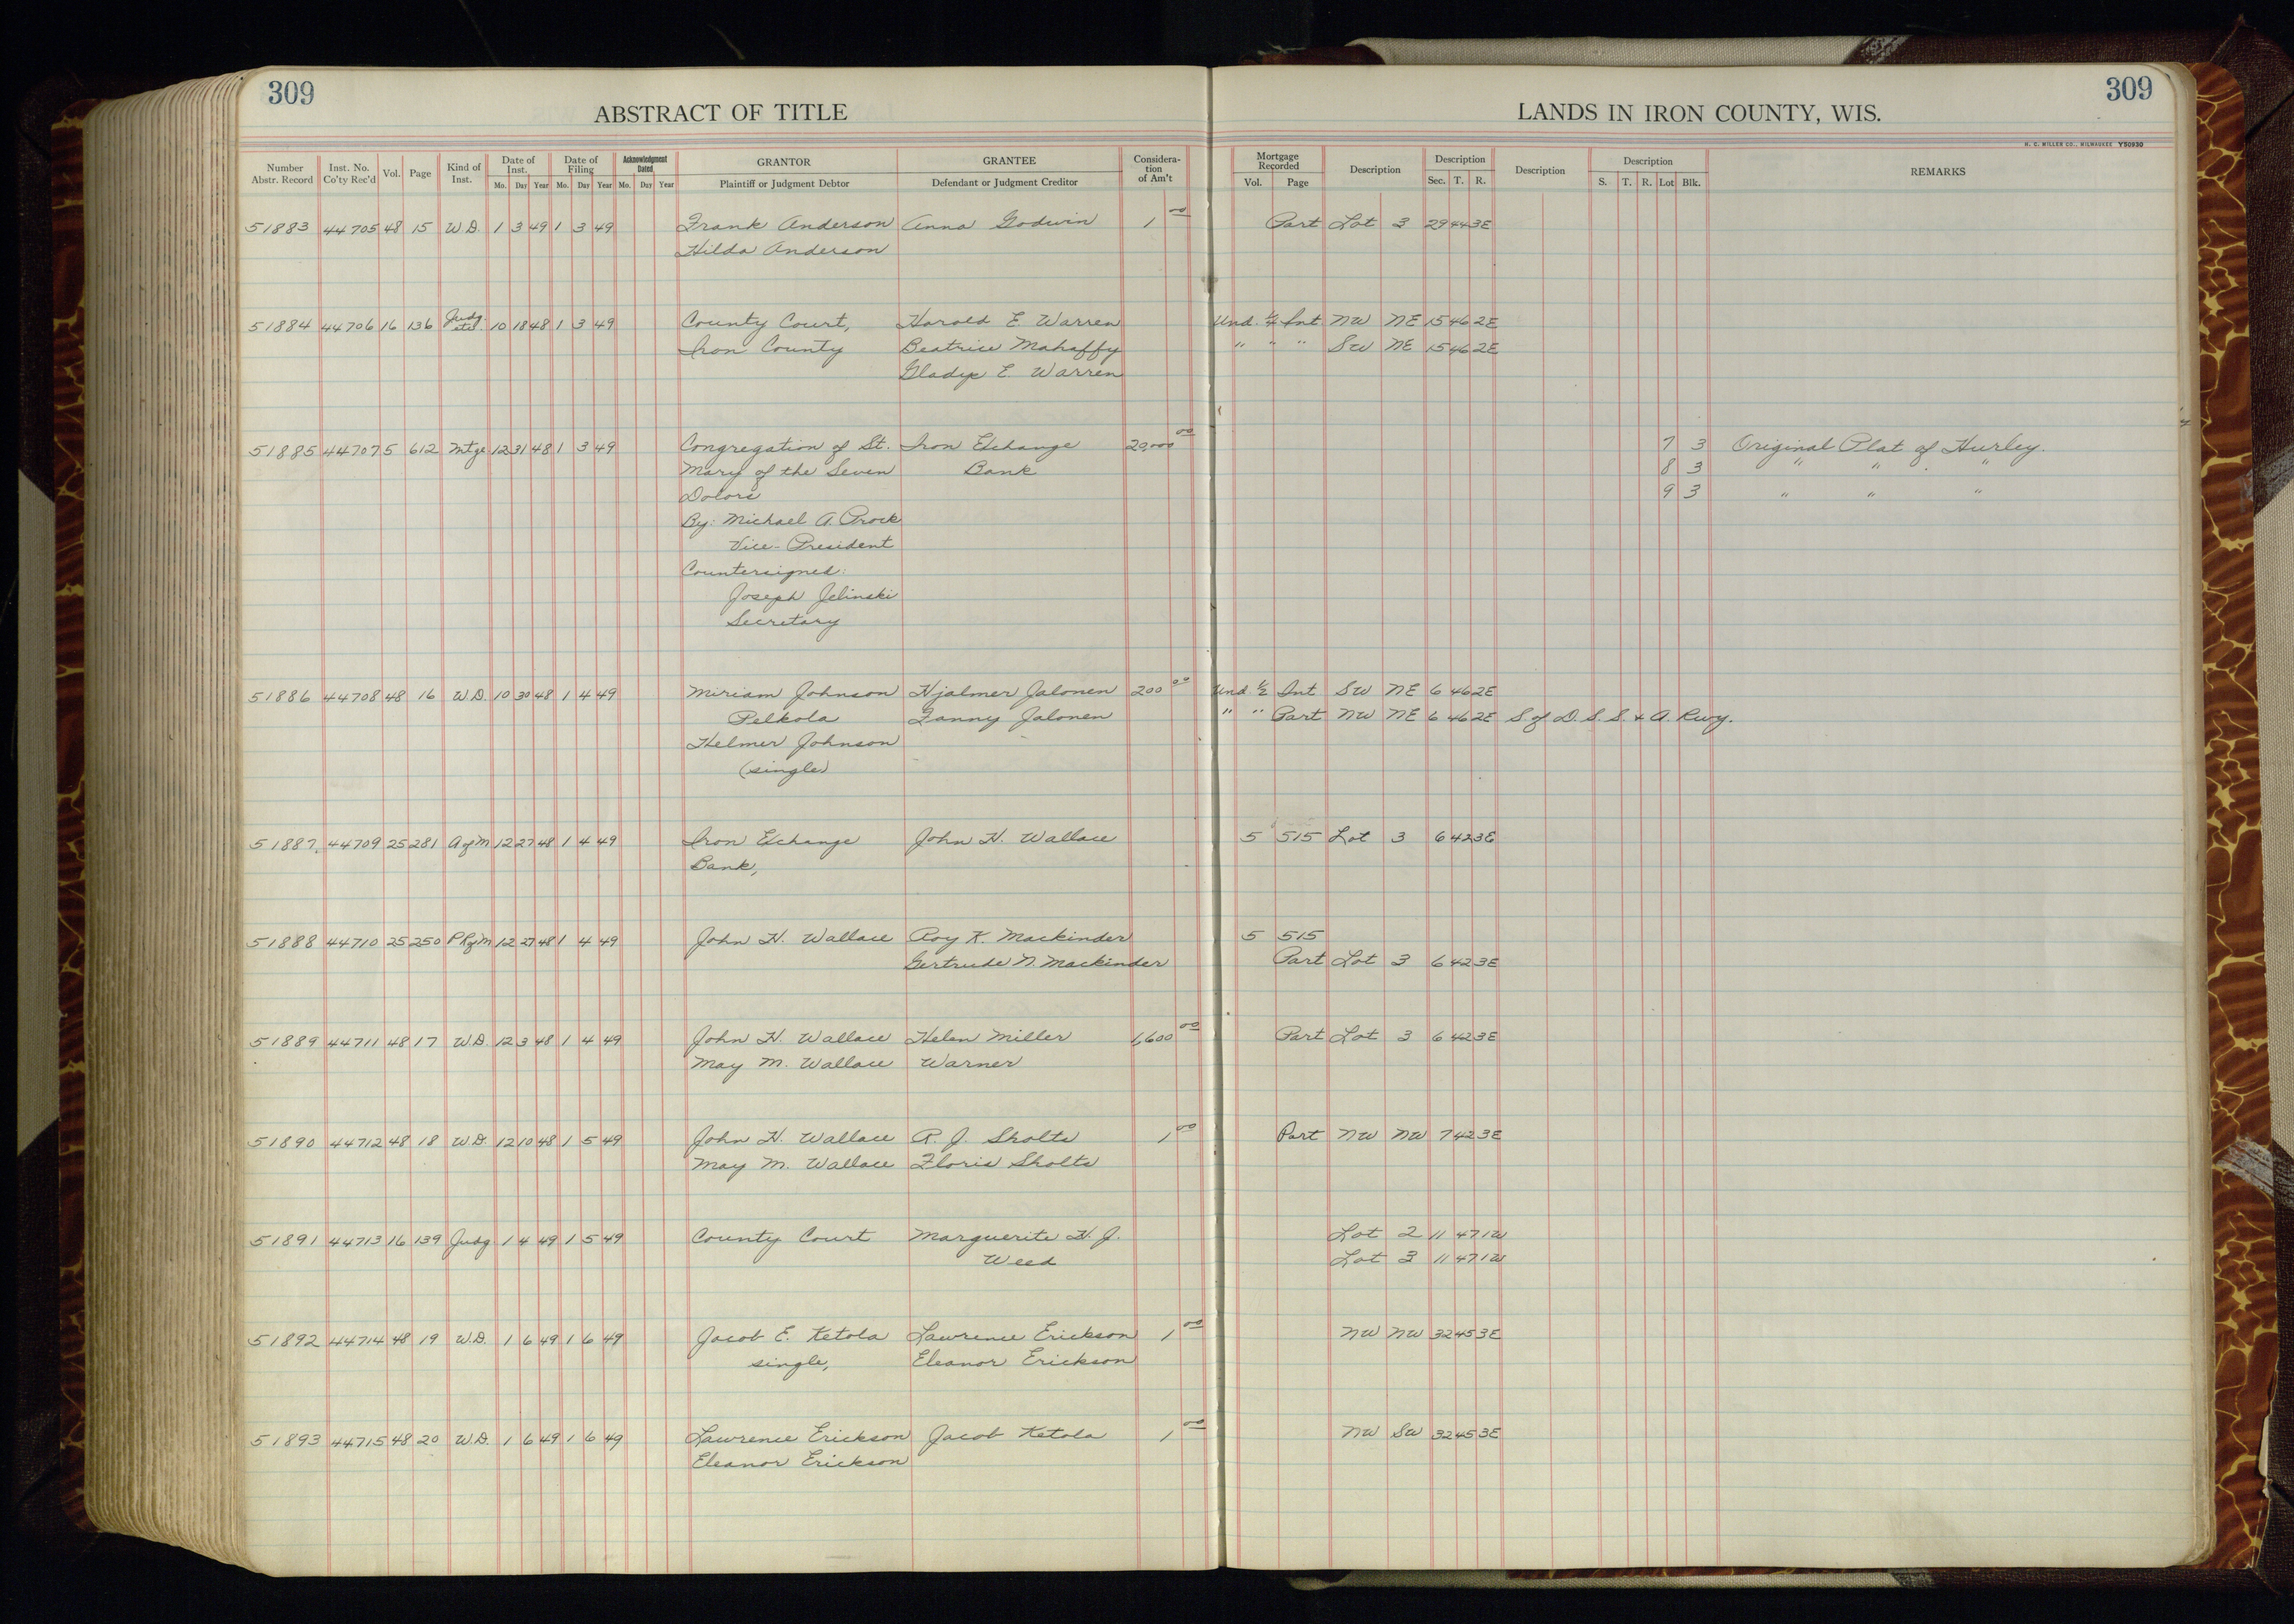 309
309
ABSTRACT OF TITLE
LANDS IN IRON COUNTY, WIS.
H. C. MILLER CO., MILWAUKEE Y50930
Number Abstr. Record Inst. No. Co'ty Rec'd Vol. Page Kind of Inst. Date of Inst. Mo. Day Year Date of Filing Mo. Day Year Acknowledgment Dated Mo. Day Year GRANTOR Plaintiff or Judgment Debtor GRANTEE Defendant or Judgment Creditor Considera- tion of Am't Mortgage Recorded Vol. Page Description Description Sec. T. R. Description Description S. T. R. Lot Blk. REMARKS
51883 44705 48 15 W.D. 1 3 49 1 3 49 Frank Anderson Anna Godwin 1 00 Part Lot 3 29 44 3E
Hilda Anderson
51884 44706 16 136 Judg. etc. 10 18 48 1 3 49 County Court, Harold E. Warren Und. 1/4 Int. NW NE 15 46 2E
Iron County Beatrice Mahaffy " " " SW NE 15 46 2E
Gladys E. Warren
51885 44707 5 612 Mtge 12 31 48 1 3 49 Congregation of St. Iron Exchange 20,000 00 7 3 Original Plat of Hurley.
Mary of the Seven Bank 8 3 " " "
Dolors 9 3 " " "
By: Michael A. Prock
Vice-President
Countersigned:
Joseph Jelinski
Secretary
51886 44708 48 16 W.D. 10 30 48 1 4 49 Miriam Johnson Hjalmer Jalonen 200 00 Und. 1/2 Int SW NE 6 46 2E
Pelkola Fanny Jalonen " " Part NW NE 6 46 2E S. of D. S. S. & A. Rwy.
Helmer Johnson
(single)
51887 44709 25 281 A of M 12 27 48 1 4 49 Iron Exchange John H. Wallace 5 515 Lot 3 6 42 3E
Bank,
51888 44710 25 250 P R of M 12 27 48 1 4 49 John H. Wallace Roy K. Mackinder 5 515
Gertrude N. Mackinder Part Lot 3 6 42 3E
51889 44711 48 17 W.D. 12 3 48 1 4 49 John H. Wallace Helen Miller 1,600 00 Part Lot 3 6 42 3E
May M. Wallace Warner
51890 44712 48 18 W.D. 12 10 48 1 5 49 John H. Wallace R. J. Sholts 1 00 Part NW NW 7 42 3E
May M. Wallace Floris Sholts
51891 44713 16 139 Judg. 1 4 49 1 5 49 County Court Marguerite H. J. Lot 2 11 47 1W
Weed Lot 3 11 47 1W
51892 44714 48 19 W.D. 1 6 49 1 6 49 Jacob E. Ketola Lawrence Erickson 1 00 NW NW 32 45 3E
single, Eleanor Erickson
51893 44715 48 20 W.D. 1 6 49 1 6 49 Lawrence Erickson Jacob Ketola 1 00 NW SW 32 45 3E
Eleanor Erickson